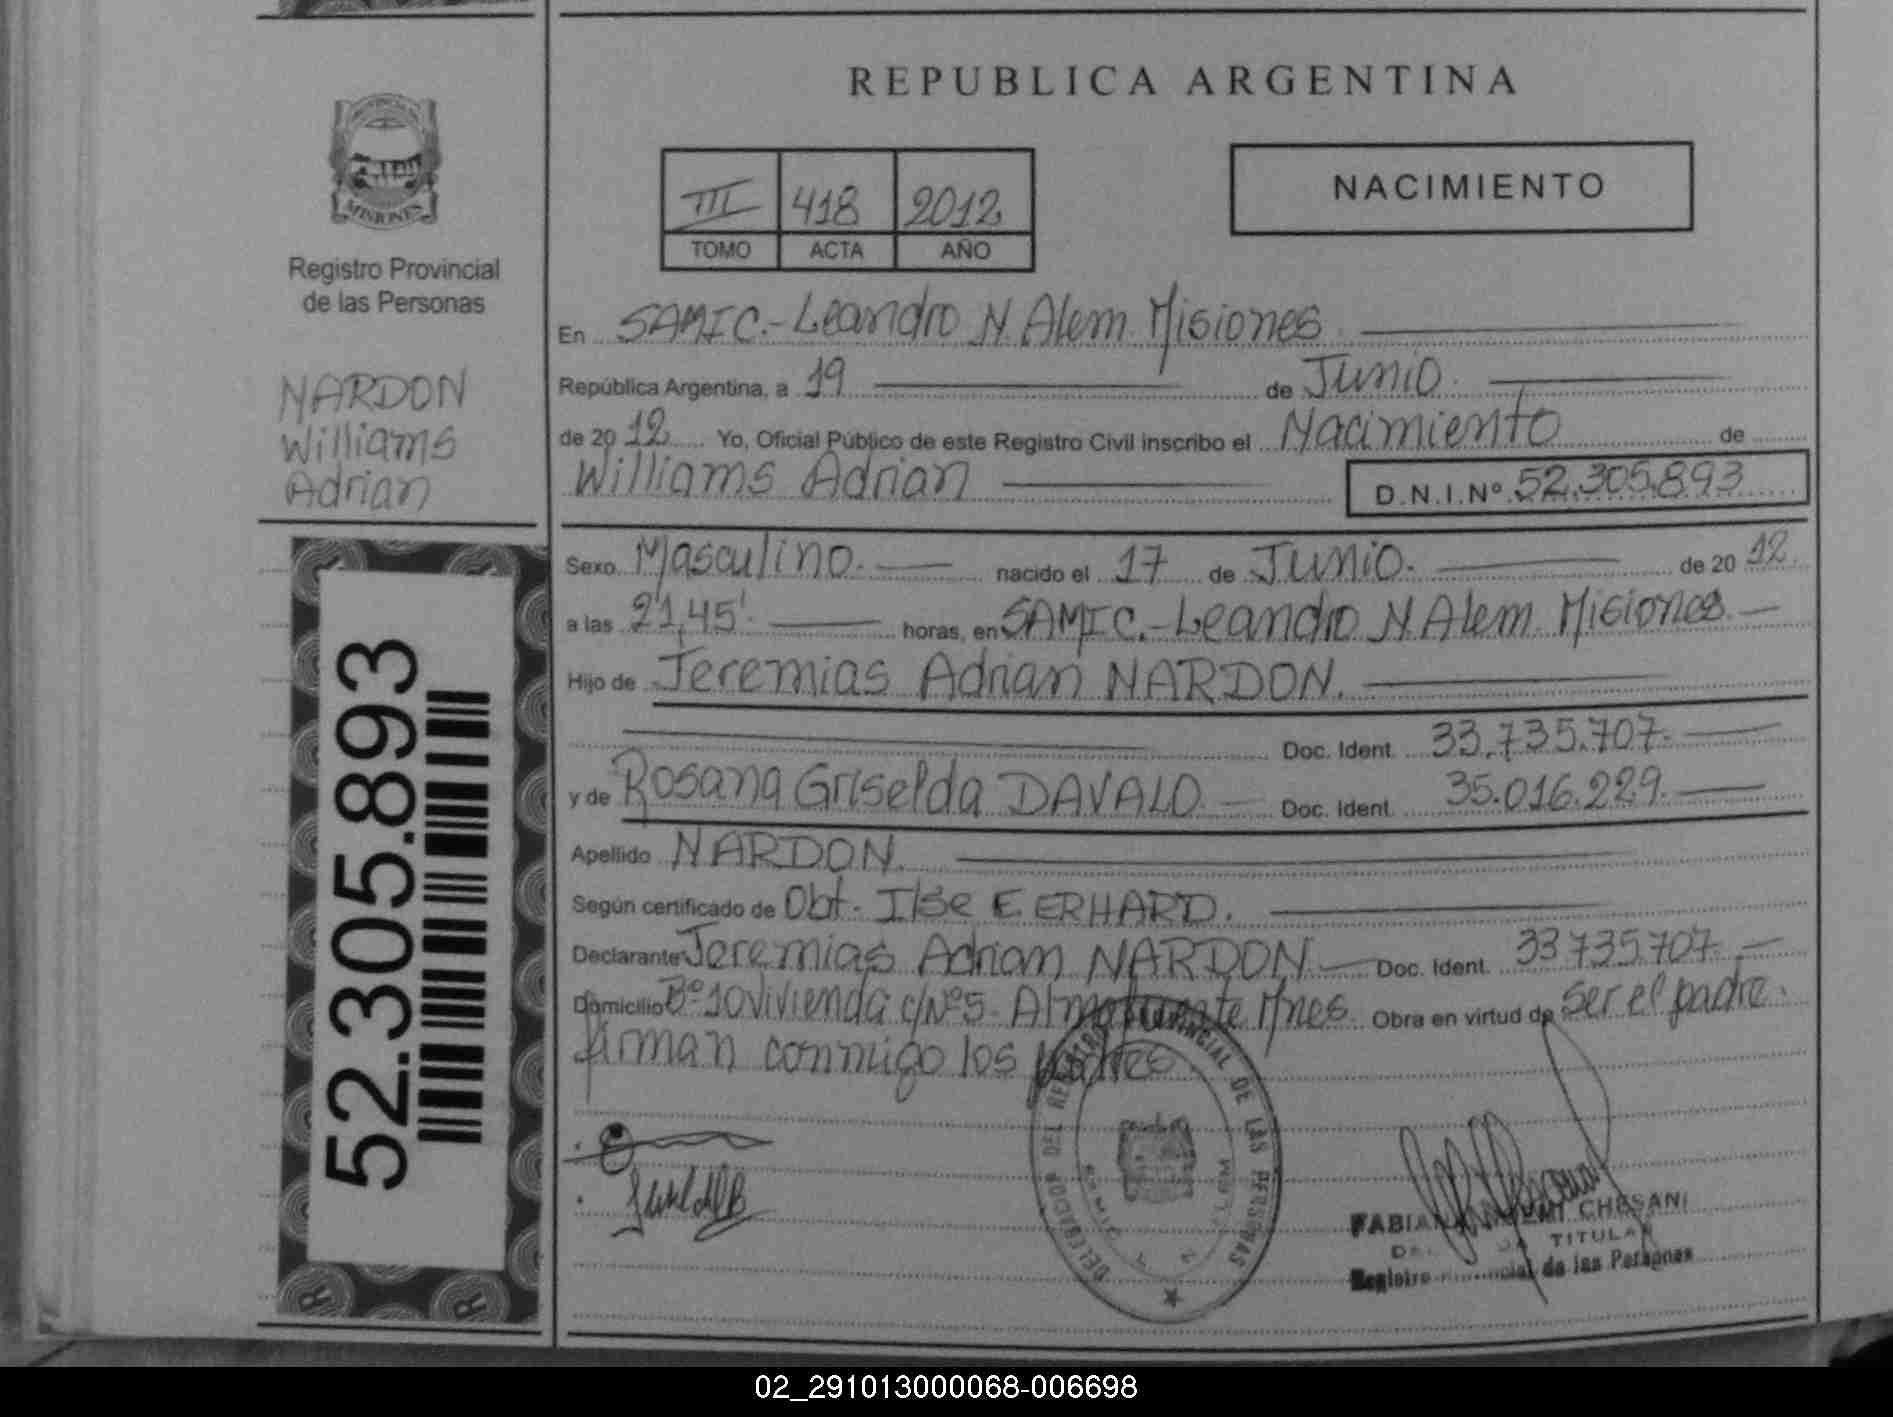 REPUBLICA ARGENTINA
MISIONES
Registro Provincial
de las Personas
NARDON
Williams
Adrian
52.305.893
R
R
III 418 2012
TOMO ACTA AÑO
NACIMIENTO
En SAMIC.-Leandro N. Alem. Misiones
República Argentina, a 19 de Junio.
de 2012 Yo, Oficial Público de este Registro Civil inscribo el Nacimiento de
Williams Adrian D.N.I.Nº 52.305.893
Sexo Masculino. nacido el 17 de Junio. de 2012.
a las 21,45' horas, en SAMIC.-Leandro N. Alem. Misiones
Hijo de Jeremias Adrian NARDON.
Doc. Ident. 33.735.707.
y de Rosana Griselda DAVALO Doc. Ident. 35.016.229.
Apellido NARDON.
Según certificado de Obt. Ilse E ERHARD.
Declarante Jeremias Adrian NARDON Doc. Ident. 33 735.707.
Domicilio Bº 10 Vivienda c/Nº5. Almafuerte Mnes. Obra en virtud de ser el padre.
firman conmigo los padres
DELEGACION DEL REGISTRO PROVINCIAL DE LAS PERSONAS
CHESANI
TITULAR
Registro de las Personas
02_291013000068-006698